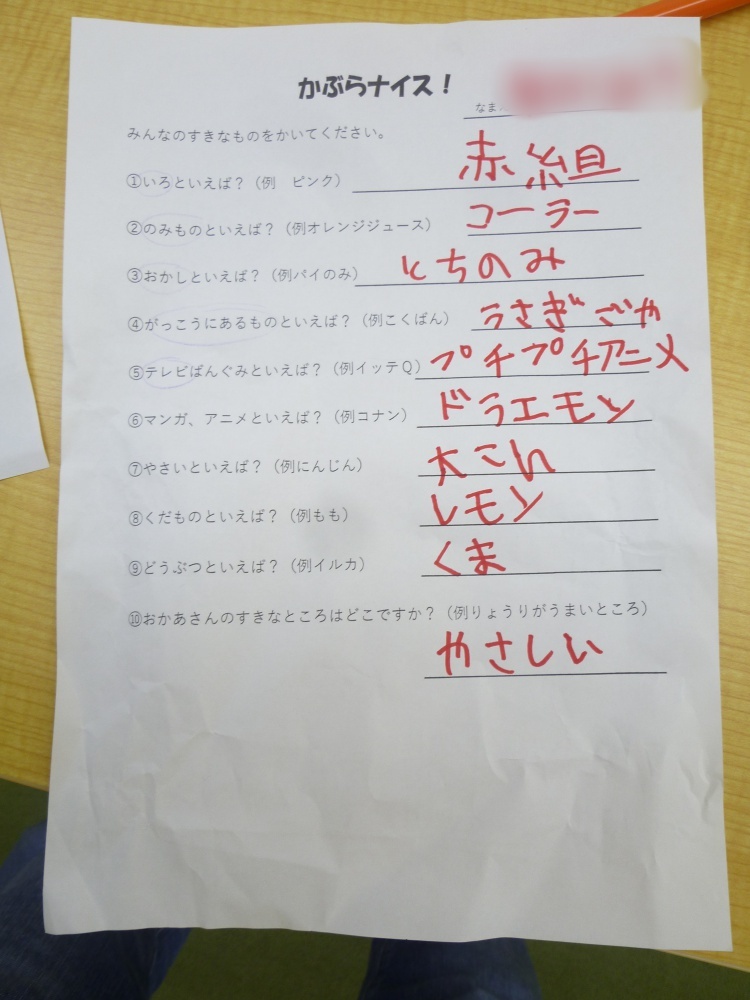 かぶらナイス！
なま
みんなのすきなものをかいてください。
①いろといえば？（例　ピンク） 赤組
②のみものといえば？（例オレンジジュース） コーラー
③おかしといえば？（例パイのみ） とちのみ
④がっこうにあるものといえば？（例こくばん） うさぎごや
⑤テレビばんぐみといえば？（例イッテＱ） プチプチアニメ
⑥マンガ、アニメといえば？（例コナン） ドラエモン
⑦やさいといえば？（例にんじん） 大こん
⑧くだものといえば？（例もも） レモン
⑨どうぶつといえば？（例イルカ） くま
⑩おかあさんのすきなところはどこですか？（例りょうりがうまいところ）
やさしい